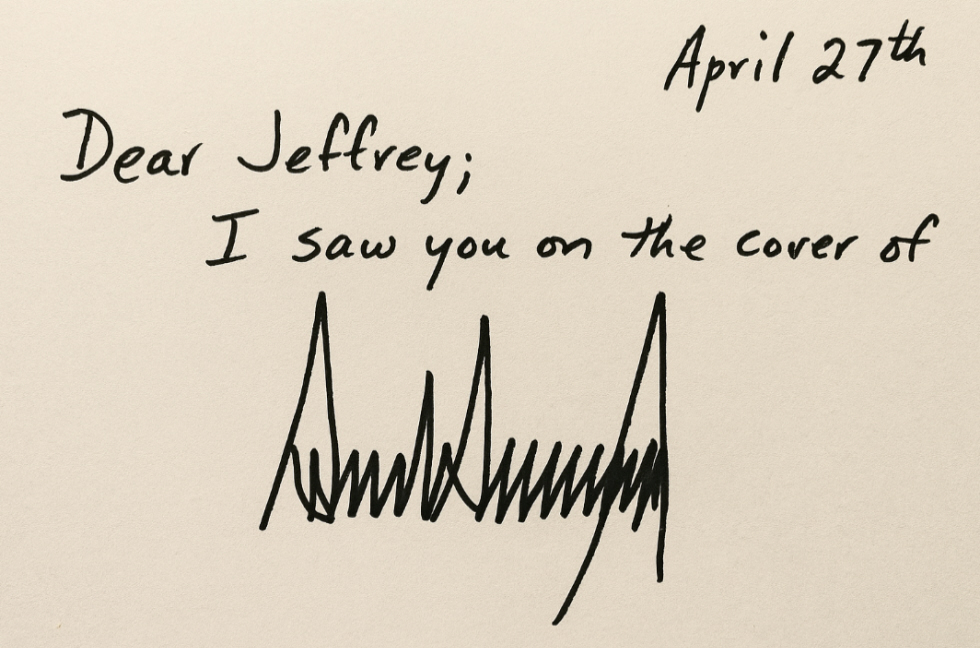 April 27th
Dear Jeffrey;
I saw you on the cover of